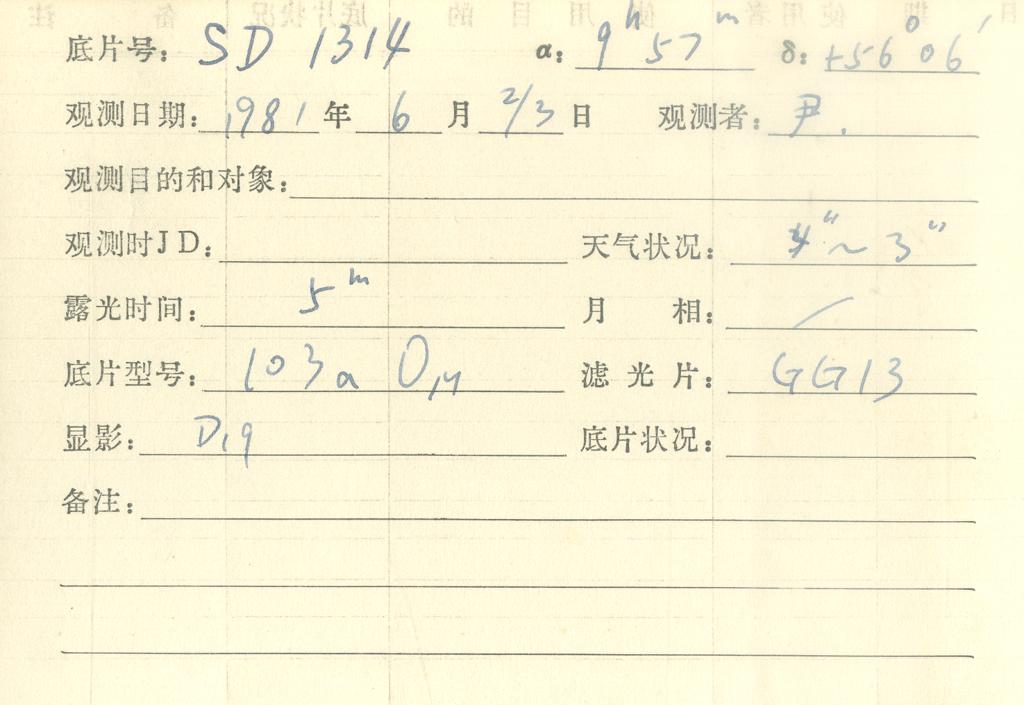 底片号: SD 1314 α: 9h 57m δ: +56° 06′
观测日期: 1981 年 6 月 2/3 日 观测者: 尹.
观测目的和对象:
观测时JD: 天气状况: 4″~3″
露光时间: 5m 月 相: /
底片型号: 103a O, 滤光片: GG13
显影: D19 底片状况:
备注: